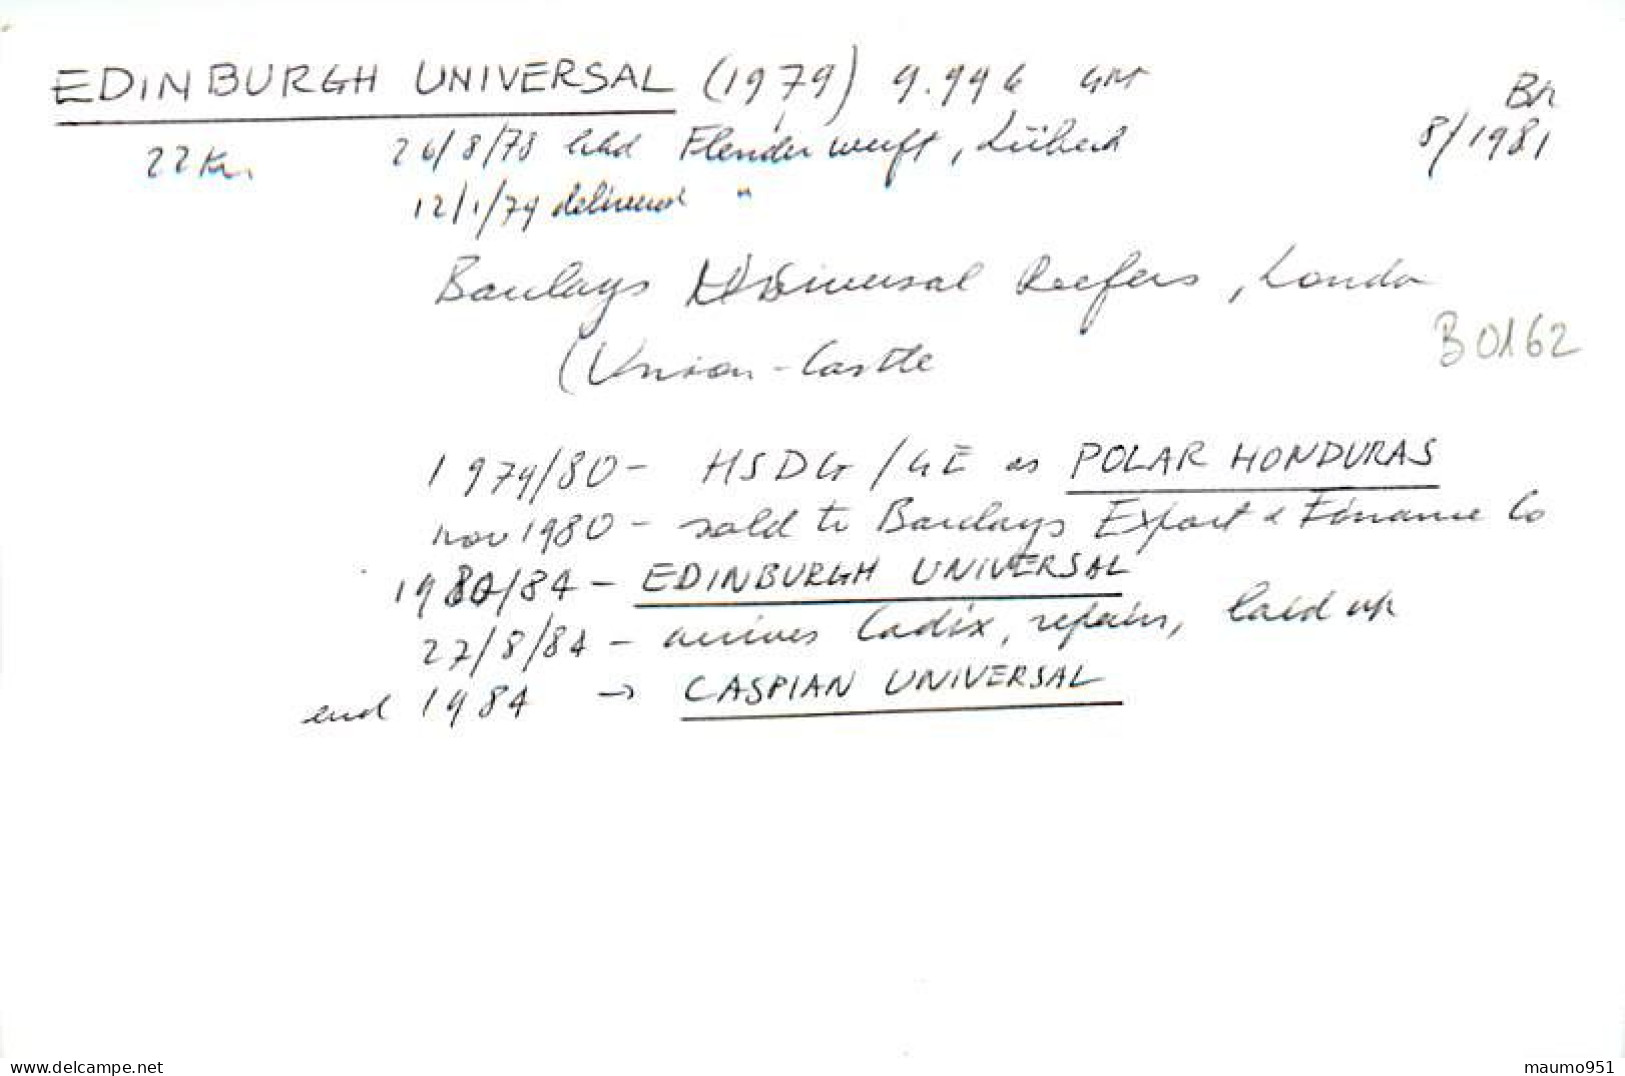 EDINBURGH UNIVERSAL (1979) 9.996 GRT Br
22 kn. 26/8/78 lchd Flender werft, Lübeck 8/1981
12/1/79 delivered "
Barclays Universal Reefers, London
(Union-Castle B0162
1979/80 - HSDG/GE as POLAR HONDURAS
nov 1980 - sold to Barclays Export & Finance Co
1980/84 - EDINBURGH UNIVERSAL
27/8/84 - arrives Cadix, repairs, laid up
end 1984 → CASPIAN UNIVERSAL
www.delcampe.net maumo951